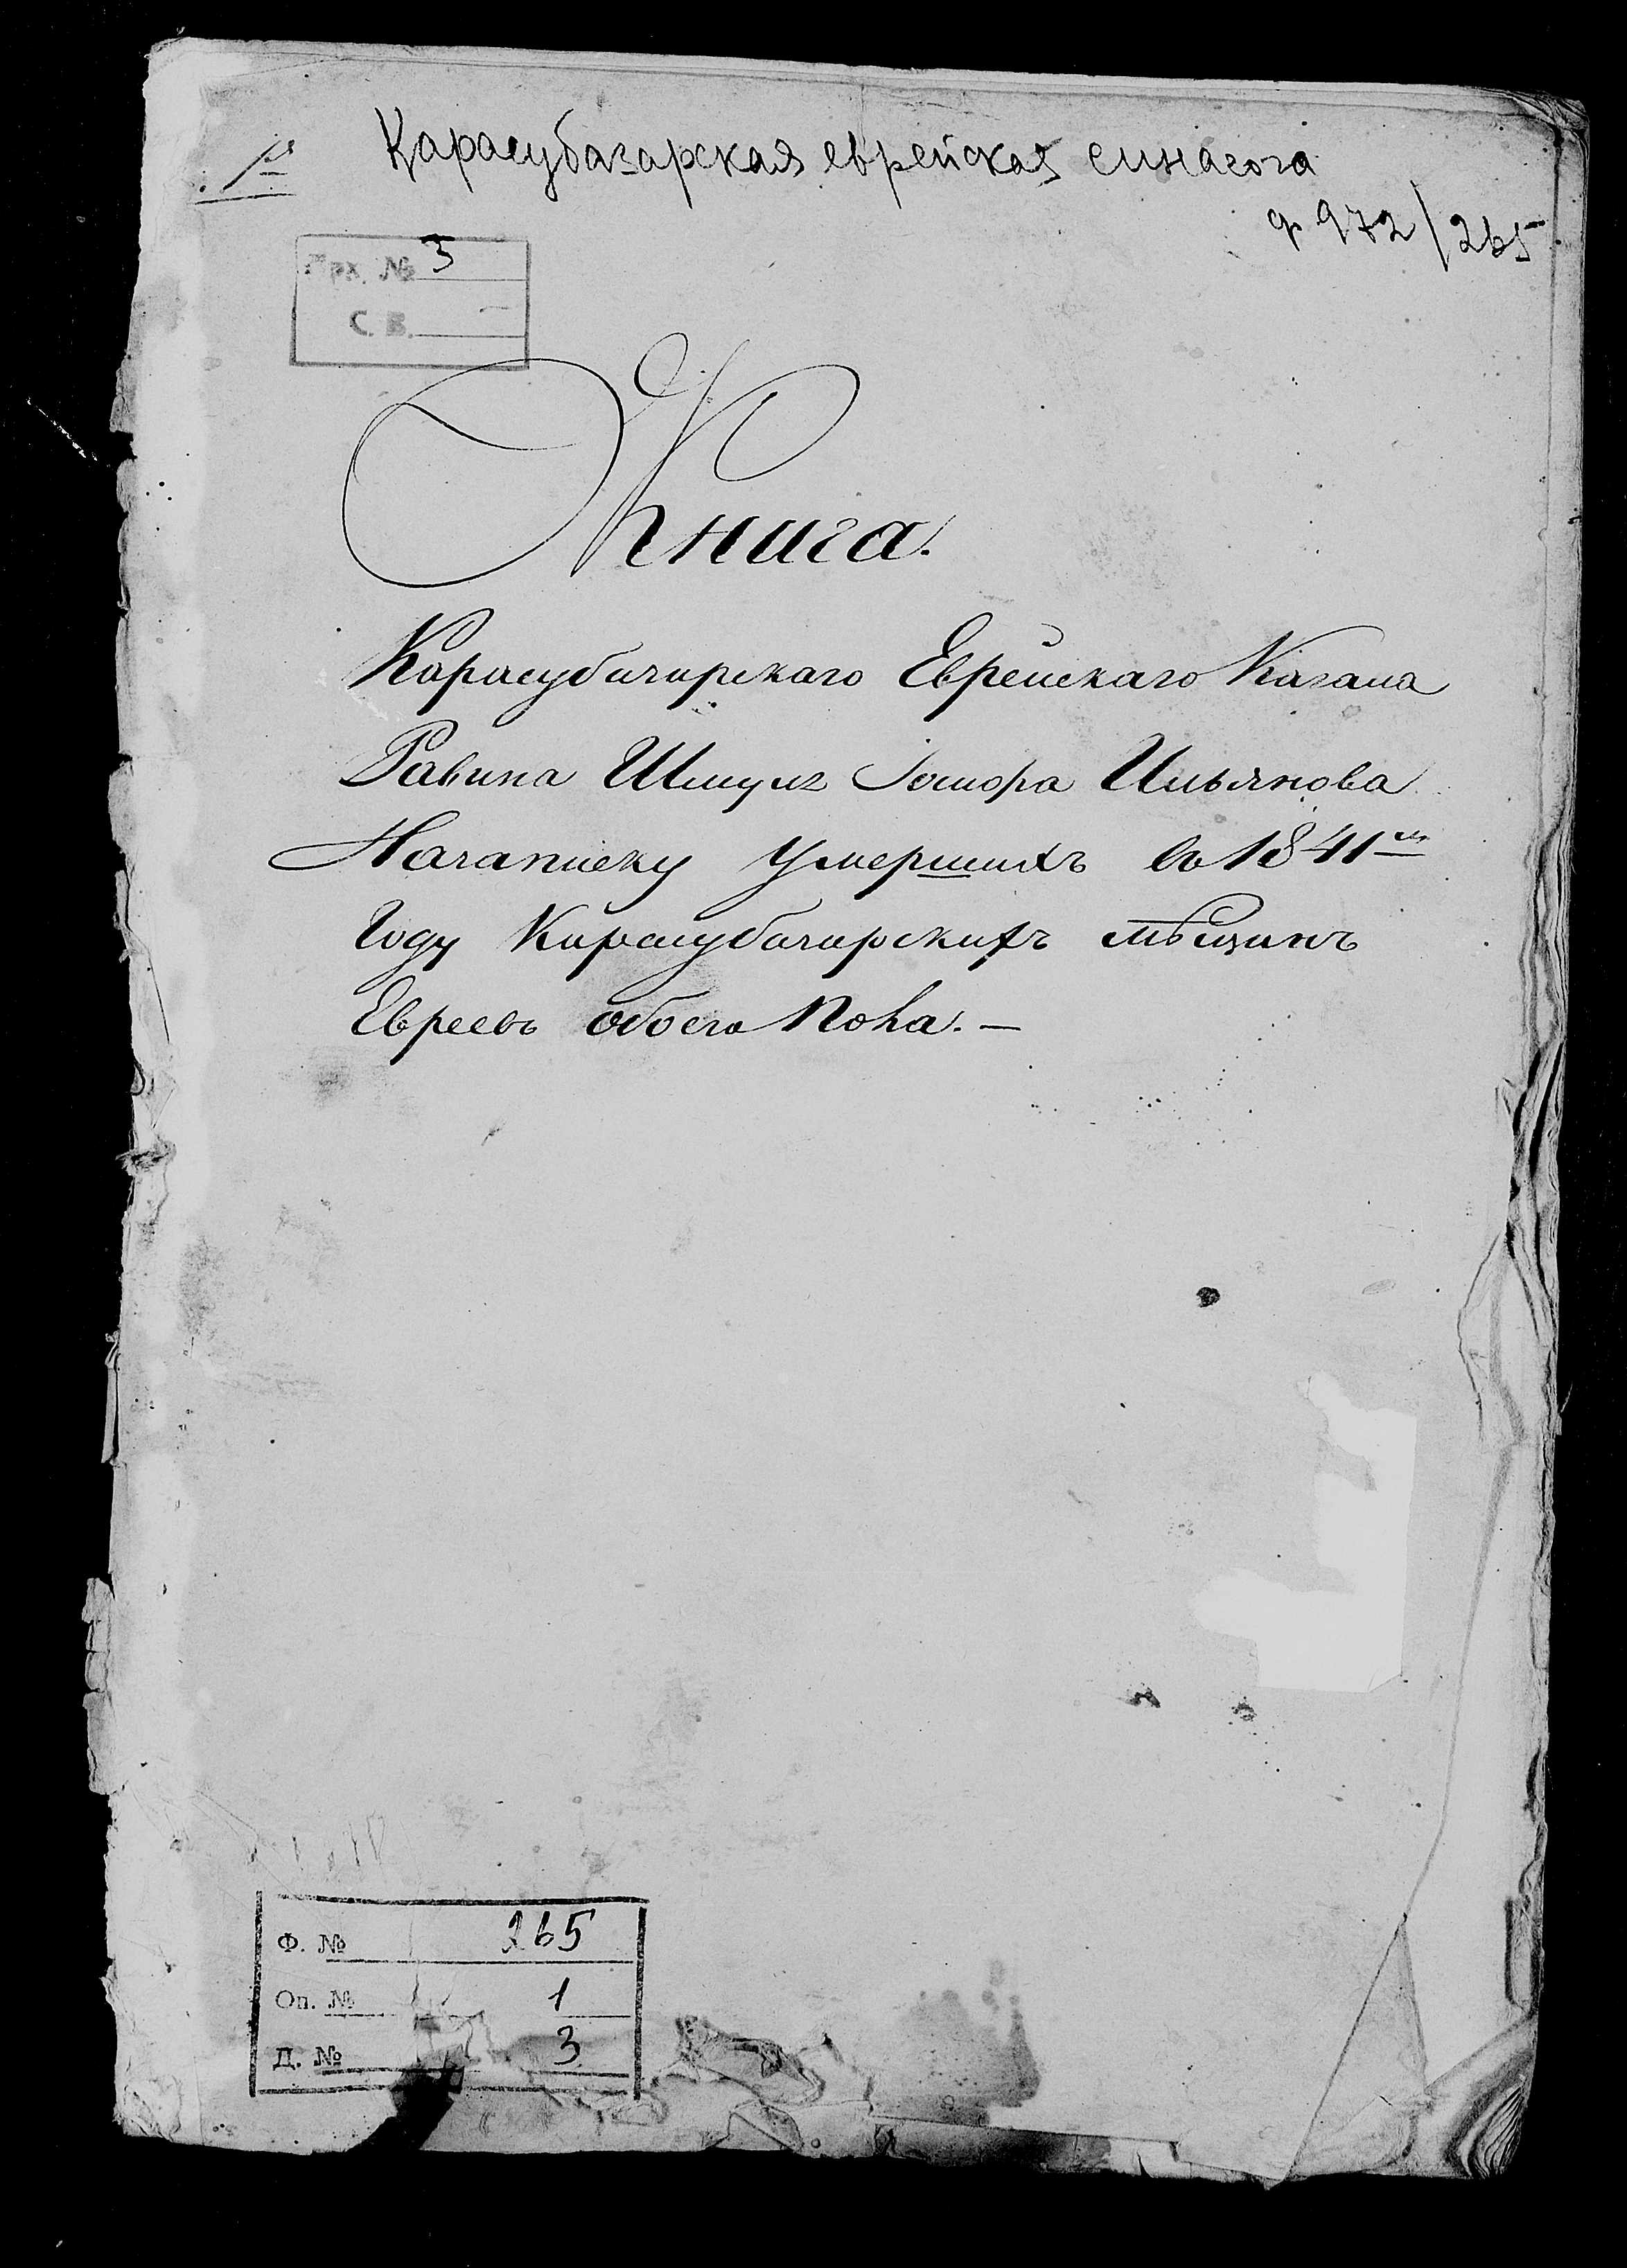 Карасубазарская еврейская синагога
ф 972/265
Арх. № 3
С. В.
Книга.
Карасубазарскаго Еврейскаго Кагала
Равина Шмуля Ильянова
Назаписку умершихъ во 1841м
Году Карасубазарскихъ мѣщанъ
Евреевъ обоего пола.—
Ф. № 265
Оп. № 1
Д. № 3